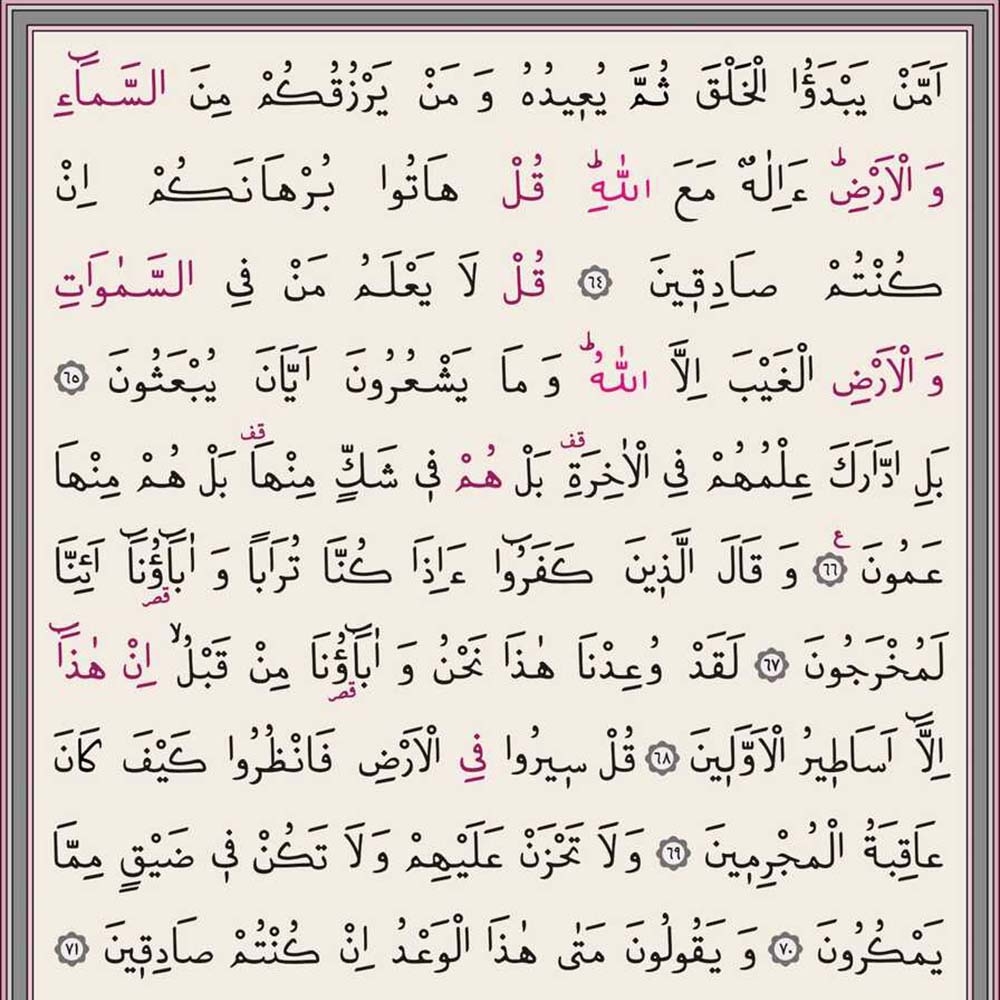 اَمَّنْ يَبْدَؤُا الْخَلْقَ ثُمَّ يُعٖيدُهُ وَ مَنْ يَرْزُقُكُمْ مِنَ السَّمَٓاءِ
وَ الْاَرْضِؕ ءَاِلٰهٌ مَعَ اللّٰهِؕ قُلْ هَاتُوا بُرْهَانَكُمْ اِنْ
كُنْتُمْ صَادِقٖينَ ﴿٦٤﴾ قُلْ لَا يَعْلَمُ مَنْ فِى السَّمٰوَاتِ
وَ الْاَرْضِ الْغَيْبَ اِلَّا اللّٰهُؕ وَ مَا يَشْعُرُونَ اَيَّانَ يُبْعَثُونَ ﴿٦٥﴾
بَلِ ادَّارَكَ عِلْمُهُمْ فِى الْاٰخِرَةِ قف بَلْ هُمْ فٖى شَكٍّ مِنْهَا قف بَلْ هُمْ مِنْهَا
عَمُونَ ﴿٦٦﴾ ع وَ قَالَ الَّذٖينَ كَفَرُٓوا ءَاِذَا كُنَّا تُرَاباً وَ اٰبَٓاؤُنَٓا قصر اَئِنَّا
لَمُخْرَجُونَ ﴿٦٧﴾ لَقَدْ وُعِدْنَا هٰذَا نَحْنُ وَ اٰبَٓاؤُنَا قصر مِنْ قَبْلُۙ اِنْ هٰذَٓا
اِلَّٓا اَسَاطٖيرُ الْاَوَّلٖينَ ﴿٦٨﴾ قُلْ سٖيرُوا فِى الْاَرْضِ فَانْظُرُوا كَيْفَ كَانَ
عَاقِبَةُ الْمُجْرِمٖينَ ﴿٦٩﴾ وَلَا تَحْزَنْ عَلَيْهِمْ وَلَا تَكُنْ فٖى ضَيْقٍ مِمَّا
يَمْكُرُونَ ﴿٧٠﴾ وَ يَقُولُونَ مَتٰى هٰذَا الْوَعْدُ اِنْ كُنْتُمْ صَادِقٖينَ ﴿٧١﴾